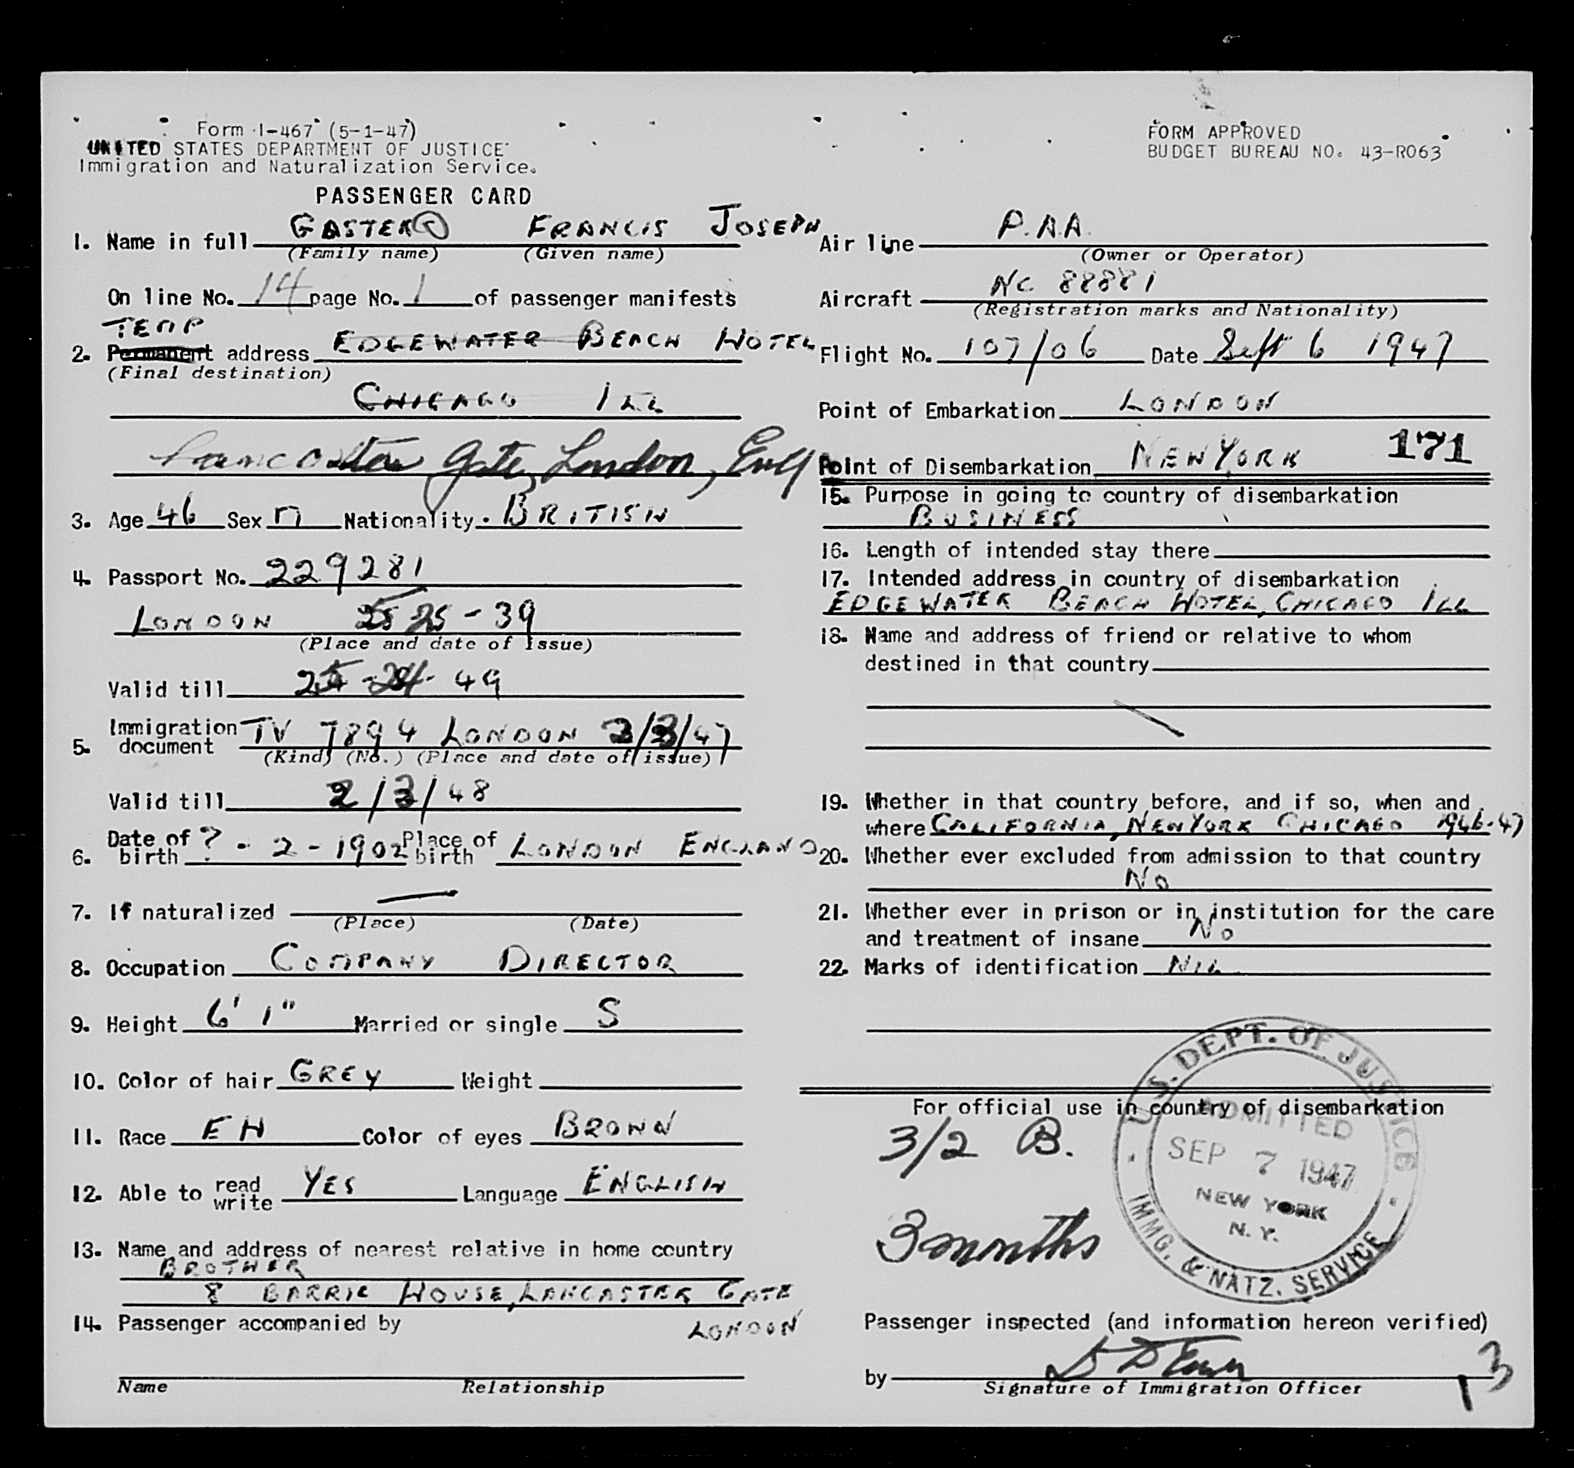 Form I-467 (5-1-47)
UNITED STATES DEPARTMENT OF JUSTICE
Immigration and Naturalization Service.
PASSENGER CARD
1. Name in full GASTER FRANCIS JOSEPH
(Family name) (Given name)
On line No. 14 page No. 1 of passenger manifests
TEMP
2. Permanent address EDGEWATER BEACH HOTEL
(Final destination)
CHICAGO ILL
Lancaster Gate, London, Eng
3. Age 46 Sex M Nationality. BRITISH
4. Passport No. 229281
LONDON 25 - 39
(Place and date of issue)
Valid till 49
5. Immigration document TV 7894 LONDON 2/3/47
(Kind) (No.) (Place and date of issue)
Valid till 2/3/48
6. Date of birth ? - 2 - 1902 Place of birth LONDON ENGLAND
7. If naturalized —
(Place) (Date)
8. Occupation COMPANY DIRECTOR
9. Height 6' 1" Married or single S
10. Color of hair GREY Weight
11. Race EH Color of eyes BROWN
12. Able to read write YES Language ENGLISH
13. Name and address of nearest relative in home country
BROTHER
8 BARRIE HOUSE, LANCASTER GATE
14. Passenger accompanied by LONDON
Name Relationship
FORM APPROVED
BUDGET BUREAU NO. 43-R063
Air line P.A.A.
(Owner or Operator)
Aircraft NC 88881
(Registration marks and Nationality)
Flight No. 107/06 Date Sept 6 1947
Point of Embarkation LONDON
Point of Disembarkation NEW YORK 171
15. Purpose in going to country of disembarkation
BUSINESS
16. Length of intended stay there
17. Intended address in country of disembarkation
EDGEWATER BEACH HOTEL, CHICAGO ILL
18. Name and address of friend or relative to whom
destined in that country
19. Whether in that country before, and if so, when and
where CALIFORNIA, NEW YORK CHICAGO 1946-47
20. Whether ever excluded from admission to that country
NO
21. Whether ever in prison or in institution for the care
and treatment of insane NO
22. Marks of identification NIL
For official use in country of disembarkation
3/2 B.
3 months
U.S. DEPT. OF JUSTICE
ADMITTED
SEP 7 1947
NEW YORK
N. Y.
IMMG. & NATZ. SERVICE
Passenger inspected (and information hereon verified)
by
Signature of Immigration Officer
13